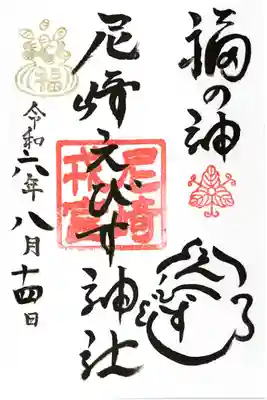 福の神
尼崎えびす神社
尼崎
戎宮
福
令和六年八月十四日
えびす